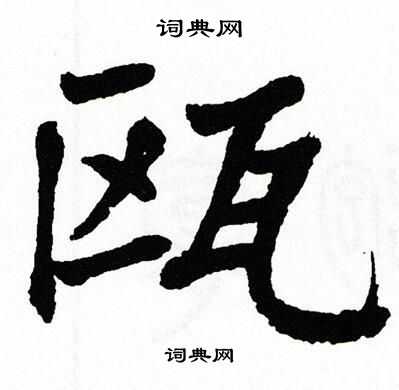 词典网
瓯
词典网